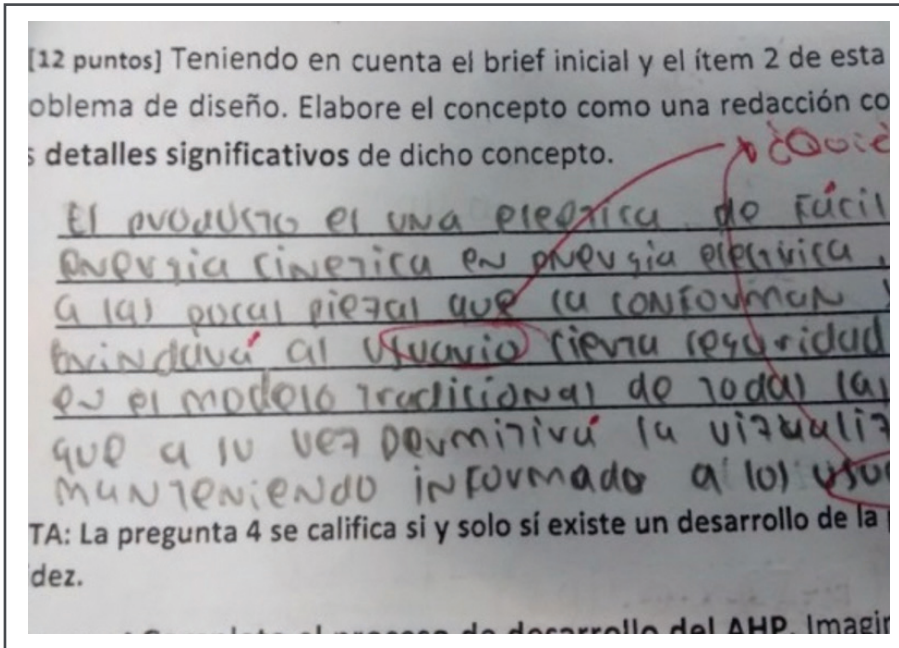 [12 puntos] Teniendo en cuenta el brief inicial y el ítem 2 de esta
oblema de diseño. Elabore el concepto como una redacción co
s detalles significativos de dicho concepto.
¿Quié
El producto es una de Fácil
energia cinetica en energia electrica,
a las pocas piezas que la conforman
brindará al usuario cierta seguridad
en el modelo tradicional de todas las
que a su vez permitirá la vizualiz
manteniendo informado a los usu
TA: La pregunta 4 se califica si y solo sí existe un desarrollo de la
dez.
proceso de desarrollo del AHP. Imagin